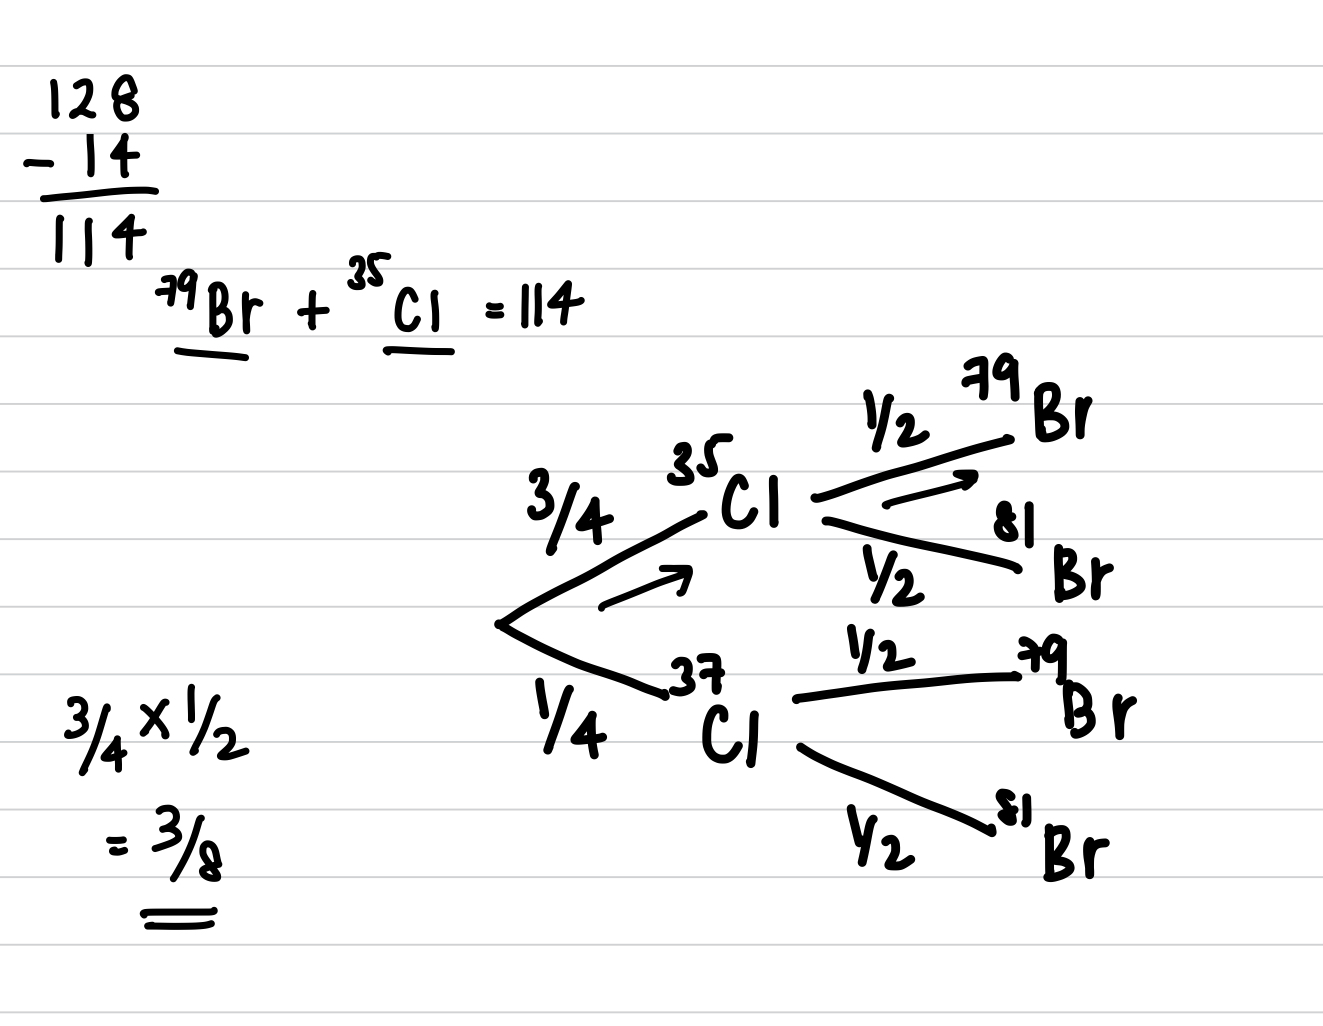 128
- 14
114
⁷⁹Br + ³⁵Cl = 114
1/2 ⁷⁹Br
3/4 ³⁵Cl
1/2 ⁸¹Br
1/4 ³⁷Cl
1/2 ⁷⁹Br
1/2 ⁸¹Br
3/4 × 1/2
= 3/8